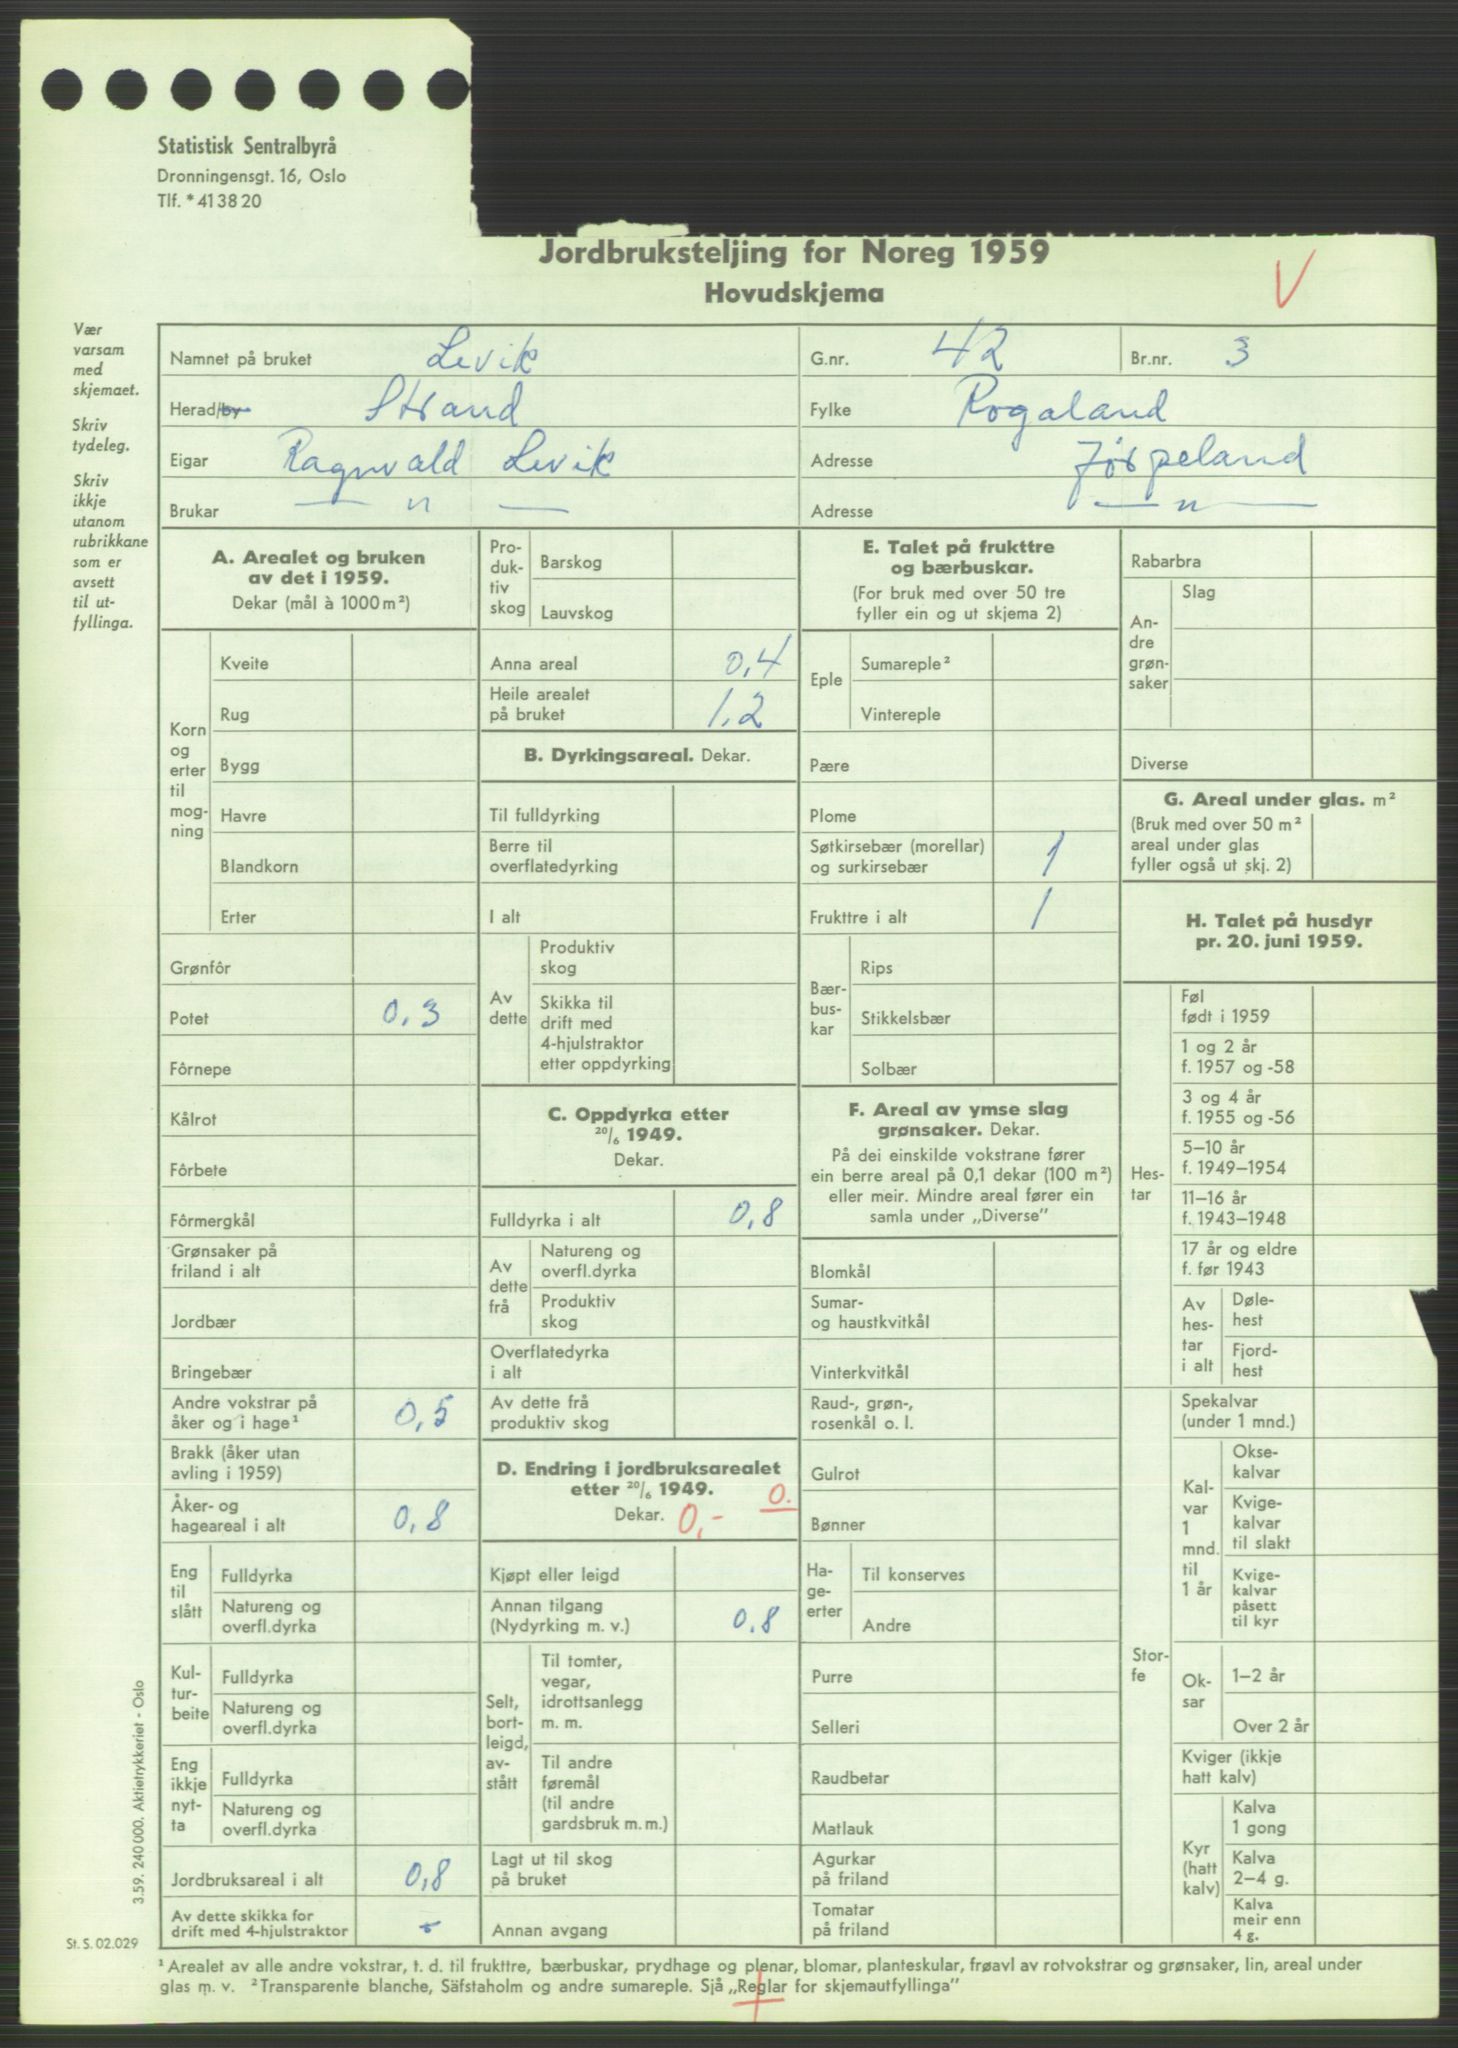 Statistisk Sentralbyrå
Dronningensgt. 16, Oslo
Tlf. *41 38 20
Jordbruksteljing for Noreg 1959
Hovudskjema
V
Vær
varsam
med
skjemaet.
Skriv
tydeleg.
Skriv
ikkje
utanom
rubrikkane
som er
avsett
til ut-
fyllinga.
Namnet på bruket Levik G.nr. 42 Br.nr. 3
Herad/by Strand Fylke Rogaland
Eigar Ragnvald Levik Adresse Jørpeland
Brukar — n — Adresse — n —
A. Arealet og bruken
av det i 1959.
Dekar (mål à 1000 m²)
Korn
og
erter
til
mog-
ning
Kveite
Rug
Bygg
Havre
Blandkorn
Erter
Grønfôr
Potet 0,3
Fôrnepe
Kålrot
Fôrbete
Fôrmergkål
Grønsaker på
friland i alt
Jordbær
Bringebær
Andre vokstrar på
åker og i hage¹ 0,5
Brakk (åker utan
avling i 1959)
Åker- og
hageareal i alt 0,8
Eng
til
slått
Fulldyrka
Natureng og
overfl.dyrka
Kul-
tur-
beite
Fulldyrka
Natureng og
overfl.dyrka
Eng
ikkje
nyt-
ta
Fulldyrka
Natureng og
overfl.dyrka
Jordbruksareal i alt 0,8
Av dette skikka for
drift med 4-hjulstraktor
Pro-
duk-
tiv
skog
Barskog
Lauvskog
Anna areal 0,4
Heile arealet
på bruket 1,2
B. Dyrkingsareal. Dekar.
Til fulldyrking
Berre til
overflatedyrking
I alt
Av
dette
Produktiv
skog
Skikka til
drift med
4-hjulstraktor
etter oppdyrking
C. Oppdyrka etter
20/6 1949.
Dekar.
Fulldyrka i alt 0,8
Av
dette
frå
Natureng og
overfl.dyrka
Produktiv
skog
Overflatedyrka
i alt
Av dette frå
produktiv skog
D. Endring i jordbruksarealet
etter 20/6 1949. 0.
Dekar. 0,-
Kjøpt eller leigd
Annan tilgang
(Nydyrking m. v.) 0,8
Selt,
bort-
leigd,
av-
stått
Til tomter,
vegar,
idrottsanlegg
m. m.
Til andre
føremål
(til andre
gardsbruk m. m.)
Lagt ut til skog
på bruket
Annan avgang
E. Talet på frukttre
og bærbuskar.
(For bruk med over 50 tre
fyller ein og ut skjema 2)
Eple
Sumareple²
Vintereple
Pære
Plome
Søtkirsebær (morellar)
og surkirsebær 1
Frukttre i alt 1
Bær-
bus-
kar
Rips
Stikkelsbær
Solbær
F. Areal av ymse slag
grønsaker. Dekar.
På dei einskilde vokstrane fører
ein berre areal på 0,1 dekar (100 m²)
eller meir. Mindre areal fører ein
samla under „Diverse”
Blomkål
Sumar-
og haustkvitkål
Vinterkvitkål
Raud-, grøn-,
rosenkål o. l.
Gulrot
Bønner
Ha-
ge-
erter
Til konserves
Andre
Purre
Selleri
Raudbetar
Matlauk
Agurkar
på friland
Tomatar
på friland
Rabarbra
An-
dre
grøn-
saker
Slag
Diverse
G. Areal under glas. m²
(Bruk med over 50 m²
areal under glas
fyller også ut skj. 2)
H. Talet på husdyr
pr. 20. juni 1959.
Hes-
tar
Føl
født i 1959
1 og 2 år
f. 1957 og -58
3 og 4 år
f. 1955 og -56
5–10 år
f. 1949–1954
11–16 år
f. 1943–1948
17 år og eldre
f. før 1943
Av
hes-
tar
i alt
Døle-
hest
Fjord-
hest
Stor-
fe
Spekalvar
(under 1 mnd.)
Kal-
var
1
mnd.
til
1 år
Okse-
kalvar
Kvige-
kalvar
til slakt
Kvige-
kalvar
påsett
til kyr
Ok-
sar
1–2 år
Over 2 år
Kviger (ikkje
hatt kalv)
Kyr
(hatt
kalv)
Kalva
1 gong
Kalva
2–4 g.
Kalva
meir enn
4 g.
3.59. 240 000. Aktietrykkeriet - Oslo
St. S. 02.029
¹ Arealet av alle andre vokstrar, t. d. til frukttre, bærbuskar, prydhage og plenar, blomar, planteskular, frøavl av rotvokstrar og grønsaker, lin, areal under
glas m. v. ² Transparente blanche, Säfstaholm og andre sumareple. Sjå „Reglar for skjemautfyllinga”